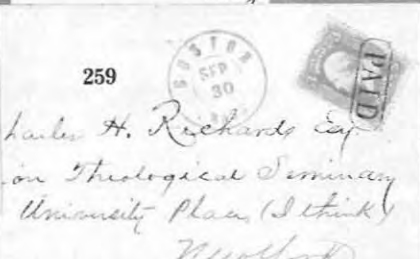 259
BOSTON
SEP
30
PAID
harles H. Richards Esq
on Theological Seminary
University Place, (I think)
New York